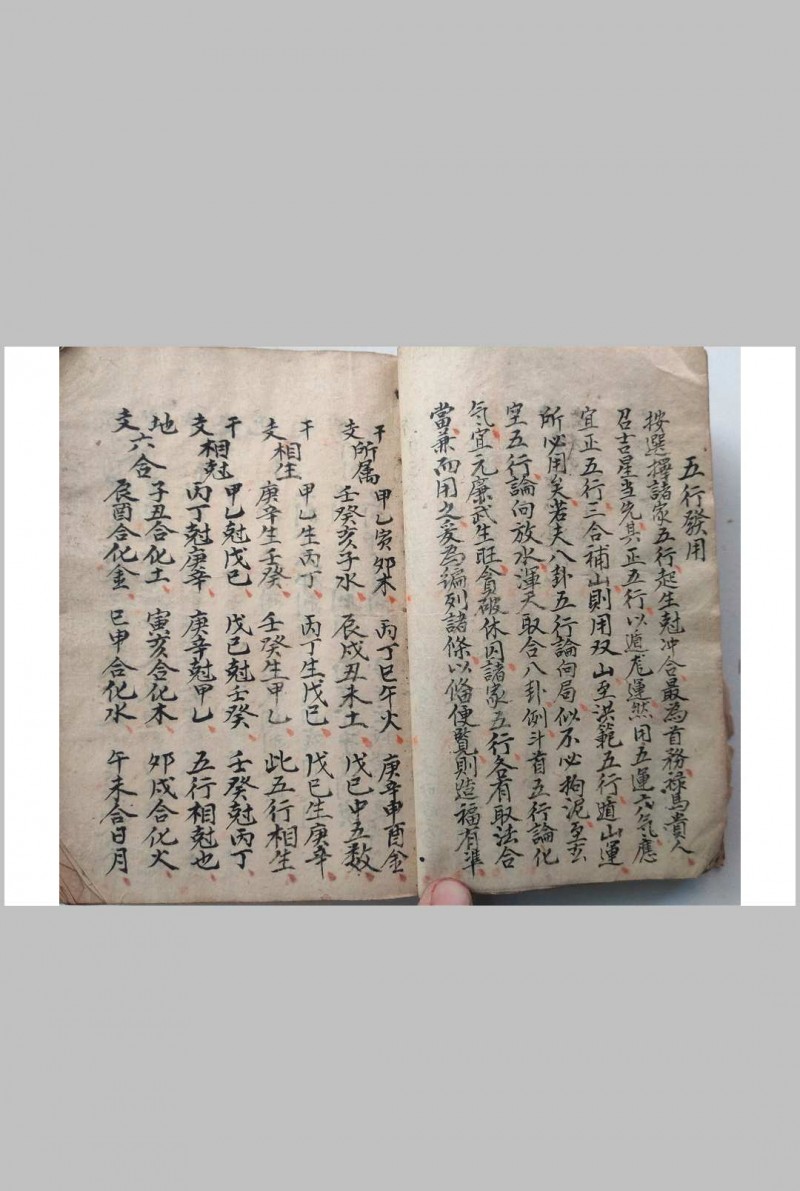 五行發用
按選擇諸家五行起生尅冲合最為首務祿馬貴人
召吉星当先其正五行以遁龙運然用五運六气應
宜正五行三合補山則用双山至洪範五行遁山運
所必用矣若夫八卦五行論向局似不必拘泥至玄
空五行論向放水渾天取合八卦例斗首五行論化
气宜元廉武生旺貪破休囚諸家五行各有取法合
當兼而用之爰為徧列諸條以俻便覧則造福有準
干支所属 甲乙寅夘木 丙丁巳午火 庚辛申酉金
壬癸亥子水 辰戌丑未土 戊己中五数
干支相生 甲乙生丙丁 丙丁生戊己 戊己生庚辛
庚辛生壬癸 壬癸生甲乙 此五行相生
干支相尅 甲乙尅戊己 戊己尅壬癸 壬癸尅丙丁
丙丁尅庚辛 庚辛尅甲乙 五行相尅也
地支六合 子丑合化土 寅亥合化木 夘戌合化火
辰酉合化金 巳申合化水 午未合日月